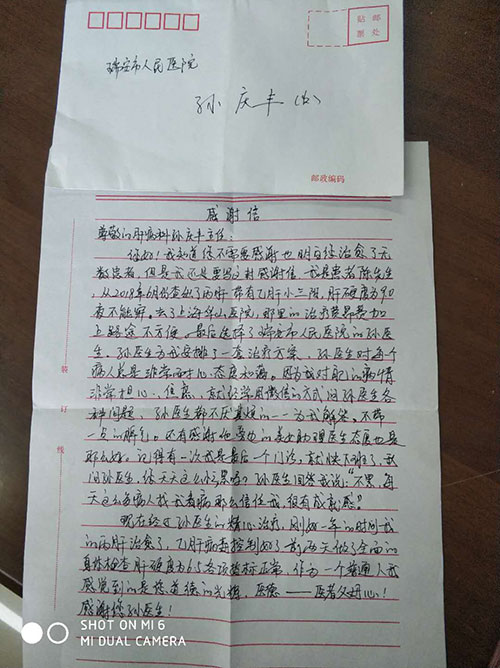 贴邮
票处
瑞安市人民医院
孙庆丰(收)
邮政编码
感谢信
尊敬的肝病科孙庆丰主任:
你好!我知道你不需要感谢也明白你治愈了无
数患者,但是我还是要写这封感谢信。我是患者陈先生
,从2018年6月份查出了丙肝带有乙肝小三阳,肝硬度为9.0
夜不能眠。去了上海华山医院,那里的治疗费昂贵加
上路途不方便。最后选择了瑞安市人民医院的孙医
生。孙医生为我安排了一套治疗方案。孙医生对每个
病人总是非常耐心,态度和蔼。因为我对自己的病情
非常担心、焦虑,就经常用微信的方式问孙医生各
种问题,孙医生都不厌其烦的一一为我解答。不带
一点的脾气。还有感谢他旁边的助理医生态度也是
那么好。记得有一次我是最后一个门诊,就快下班了,我
问孙医生,你天天这么忙累吗?孙医生回答我说:"不累,每
天这么多病人找我看病那么信任我,很有成就感。"
现在经过孙医生的精心治疗,刚好一年的时间我
的丙肝治愈了,乙肝病毒控制好了前两天做了全面的
身体检查肝硬度为6.5各项指标正常。作为一个普通人我
感觉到的是你道德的光辉,医德——医者父母心!
感谢你孙医生!
装
订
线
SHOT ON MI 6
MI DUAL CAMERA